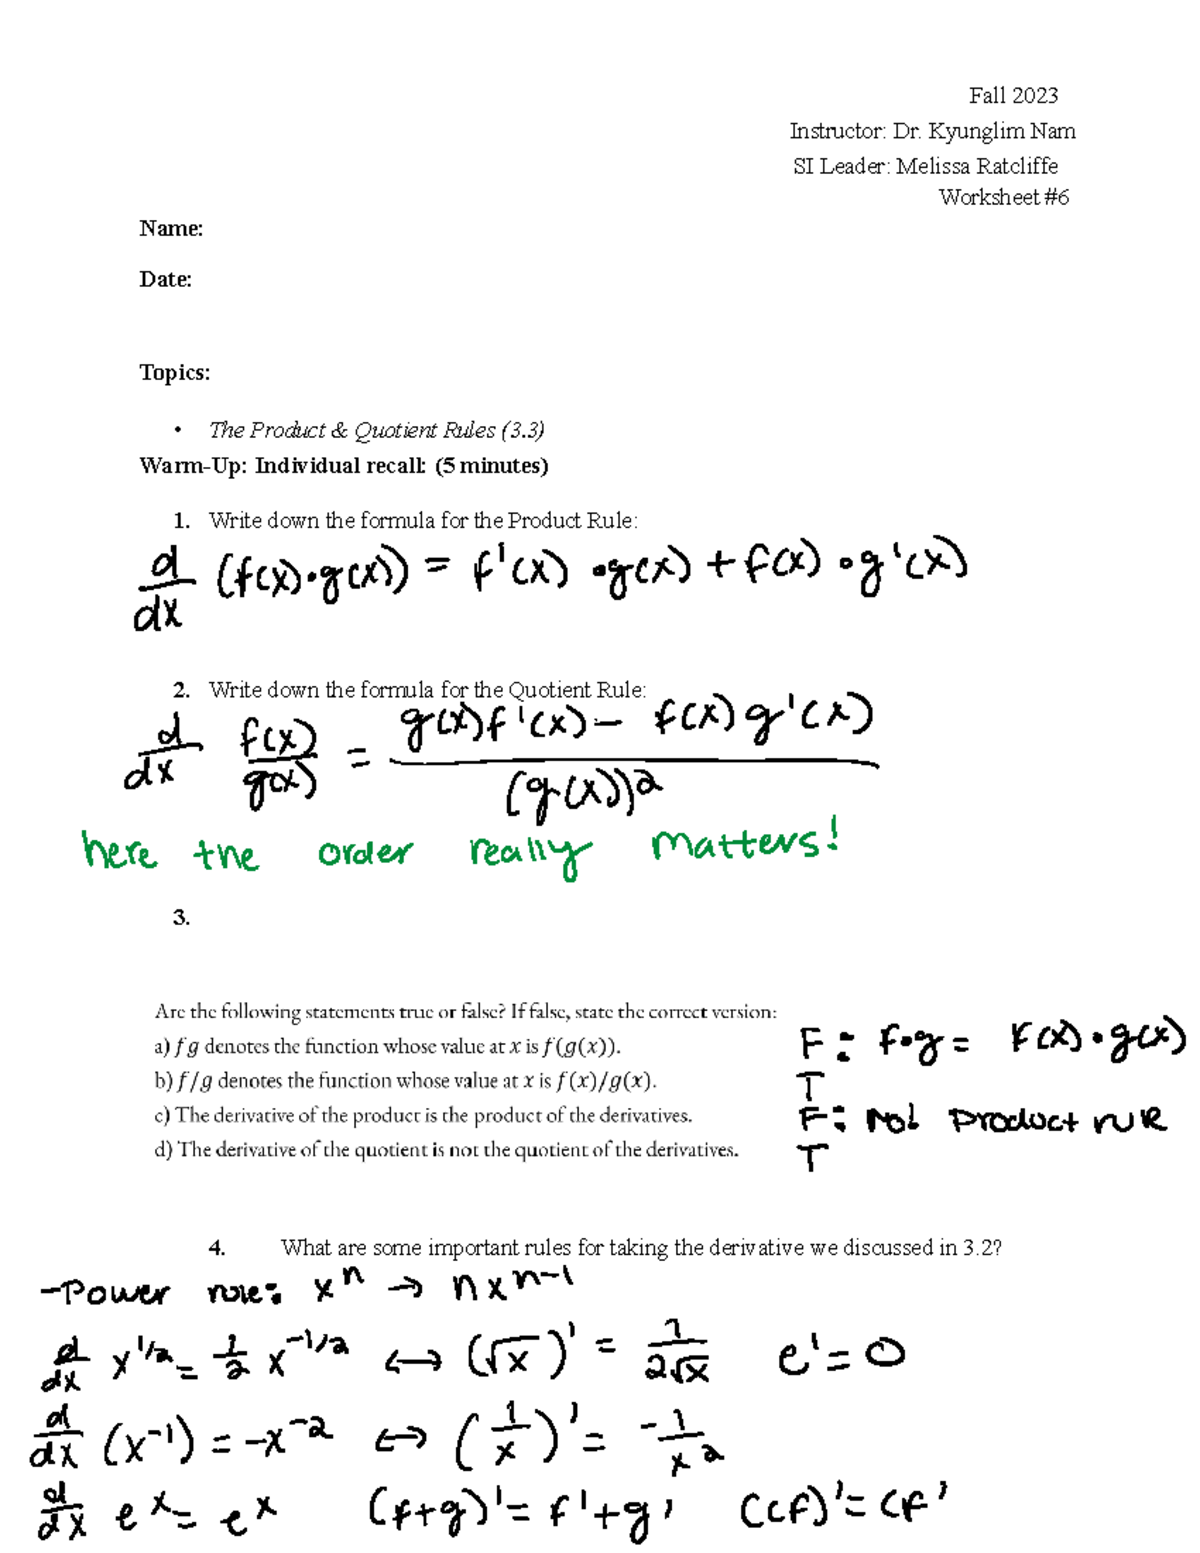 Fall 2023
Instructor: Dr. Kyunglim Nam
SI Leader: Melissa Ratcliffe
Worksheet #6
Name:
Date:
Topics:
• The Product & Quotient Rules (3.3)
Warm-Up: Individual recall: (5 minutes)
1. Write down the formula for the Product Rule:
d/dx (f(x)•g(x)) = f'(x) •g(x) + f(x) •g'(x)
2. Write down the formula for the Quotient Rule:
d/dx f(x)/g(x) = g(x)f'(x) – f(x)g'(x) / (g(x))²
here the order really matters!
3.
Are the following statements true or false? If false, state the correct version:
a) f g denotes the function whose value at x is f(g(x)). F: f•g = F(x)•g(x)
b) f/g denotes the function whose value at x is f(x)/g(x). T
c) The derivative of the product is the product of the derivatives. F: No! Product rule
d) The derivative of the quotient is not the quotient of the derivatives. T
4. What are some important rules for taking the derivative we discussed in 3.2?
-Power rule: xⁿ → nxⁿ⁻¹
d/dx x^1/2 = 1/2 x^-1/2 ↔ (√x)' = 1/2√x e' = 0
d/dx (x⁻¹) = -x⁻² ↔ (1/x)' = -1/x²
d/dx eˣ = eˣ (f+g)' = f'+g' (cf)' = cf'